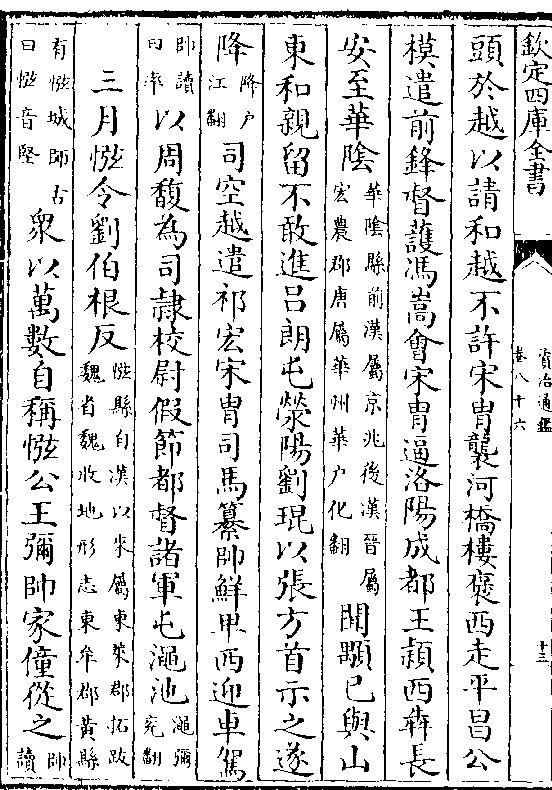 欽定四庫全書
資治通鑑
卷八十六
十三
頭於越以請和越不許宋胄襲河橋樓褒西走平昌公
模遣前鋒督護馮嵩會宋胄逼洛陽成都王穎西奔長
安至華陰華陰縣前漢屬京兆後漢晉屬宏農郡唐屬華州華户化翻聞顒已與山
東和親留不敢進呂朗屯滎陽劉琨以張方首示之遂
降降户江翻司空越遣祁宏宋胄司馬纂帥鮮卑西迎車駕
帥讀曰率以周馥為司隸校尉假節都督諸軍屯澠池澠彌兖翻
三月惤令劉伯根反惤縣自漢以來屬東萊郡拓跋魏省魏收地形志東牟郡黄縣
有惤城師古曰惤音堅衆以萬數自稱惤公王彌帥家僮從之帥讀